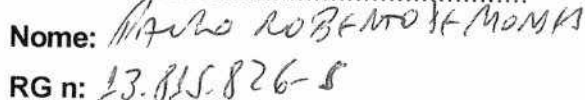 Nome: PAULO ROBERTO DE MORAES
RG n: 13.815.826-5